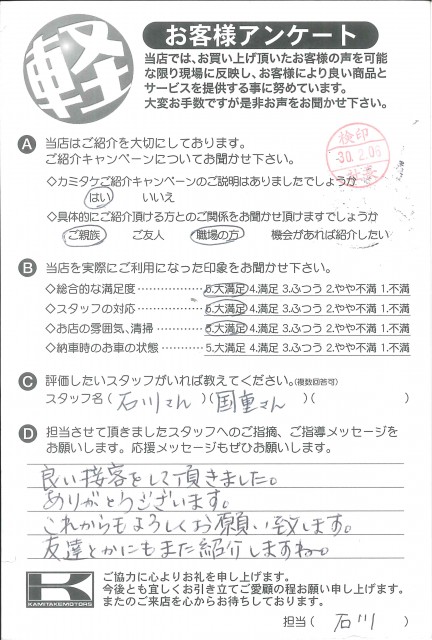 軽
お客様アンケート
当店では、お買い上げ頂いたお客様の声を可能
な限り現場に反映し、お客様により良い商品と
サービスを提供する事に努めています。
大変お手数ですが是非お声をお聞かせ下さい。
A 当店はご紹介を大切にしております。
ご紹介キャンペーンについてお聞かせ下さい。
検印
-30.2.05
◇カミタケご紹介キャンペーンのご説明はありましたでしょうか
はい いいえ
◇具体的にご紹介頂ける方とのご関係をお聞かせ頂けますでしょうか
ご親族 ご友人 職場の方 機会があれば紹介したい
B 当店を実際にご利用になった印象をお聞かせ下さい。
◇総合的な満足度……………5.大満足 4.満足 3.ふつう 2.やや不満 1.不満
◇スタッフの対応……………5.大満足 4.満足 3.ふつう 2.やや不満 1.不満
◇お店の雰囲気、清掃………5.大満足 4.満足 3.ふつう 2.やや不満 1.不満
◇納車時のお車の状態………5.大満足 4.満足 3.ふつう 2.やや不満 1.不満
C 評価したいスタッフがいれば教えてください。(複数回答可)
スタッフ名(石川さん)(国重さん)( )
D 担当させて頂きましたスタッフへのご指摘、ご指導メッセージを
お願いします。応援メッセージもぜひお願いします。
良い接客をして頂きました。
ありがとうございます。
これからもよろしくお願い致します。
友達とかにもまた紹介しますね。
K
KAMITAKEMOTORS
ご協力に心よりお礼を申し上げます。
今後とも宜しくお引き立てご愛顧の程お願い申し上げます。
またのご来店を心からお待ちしております。
担当(石川)